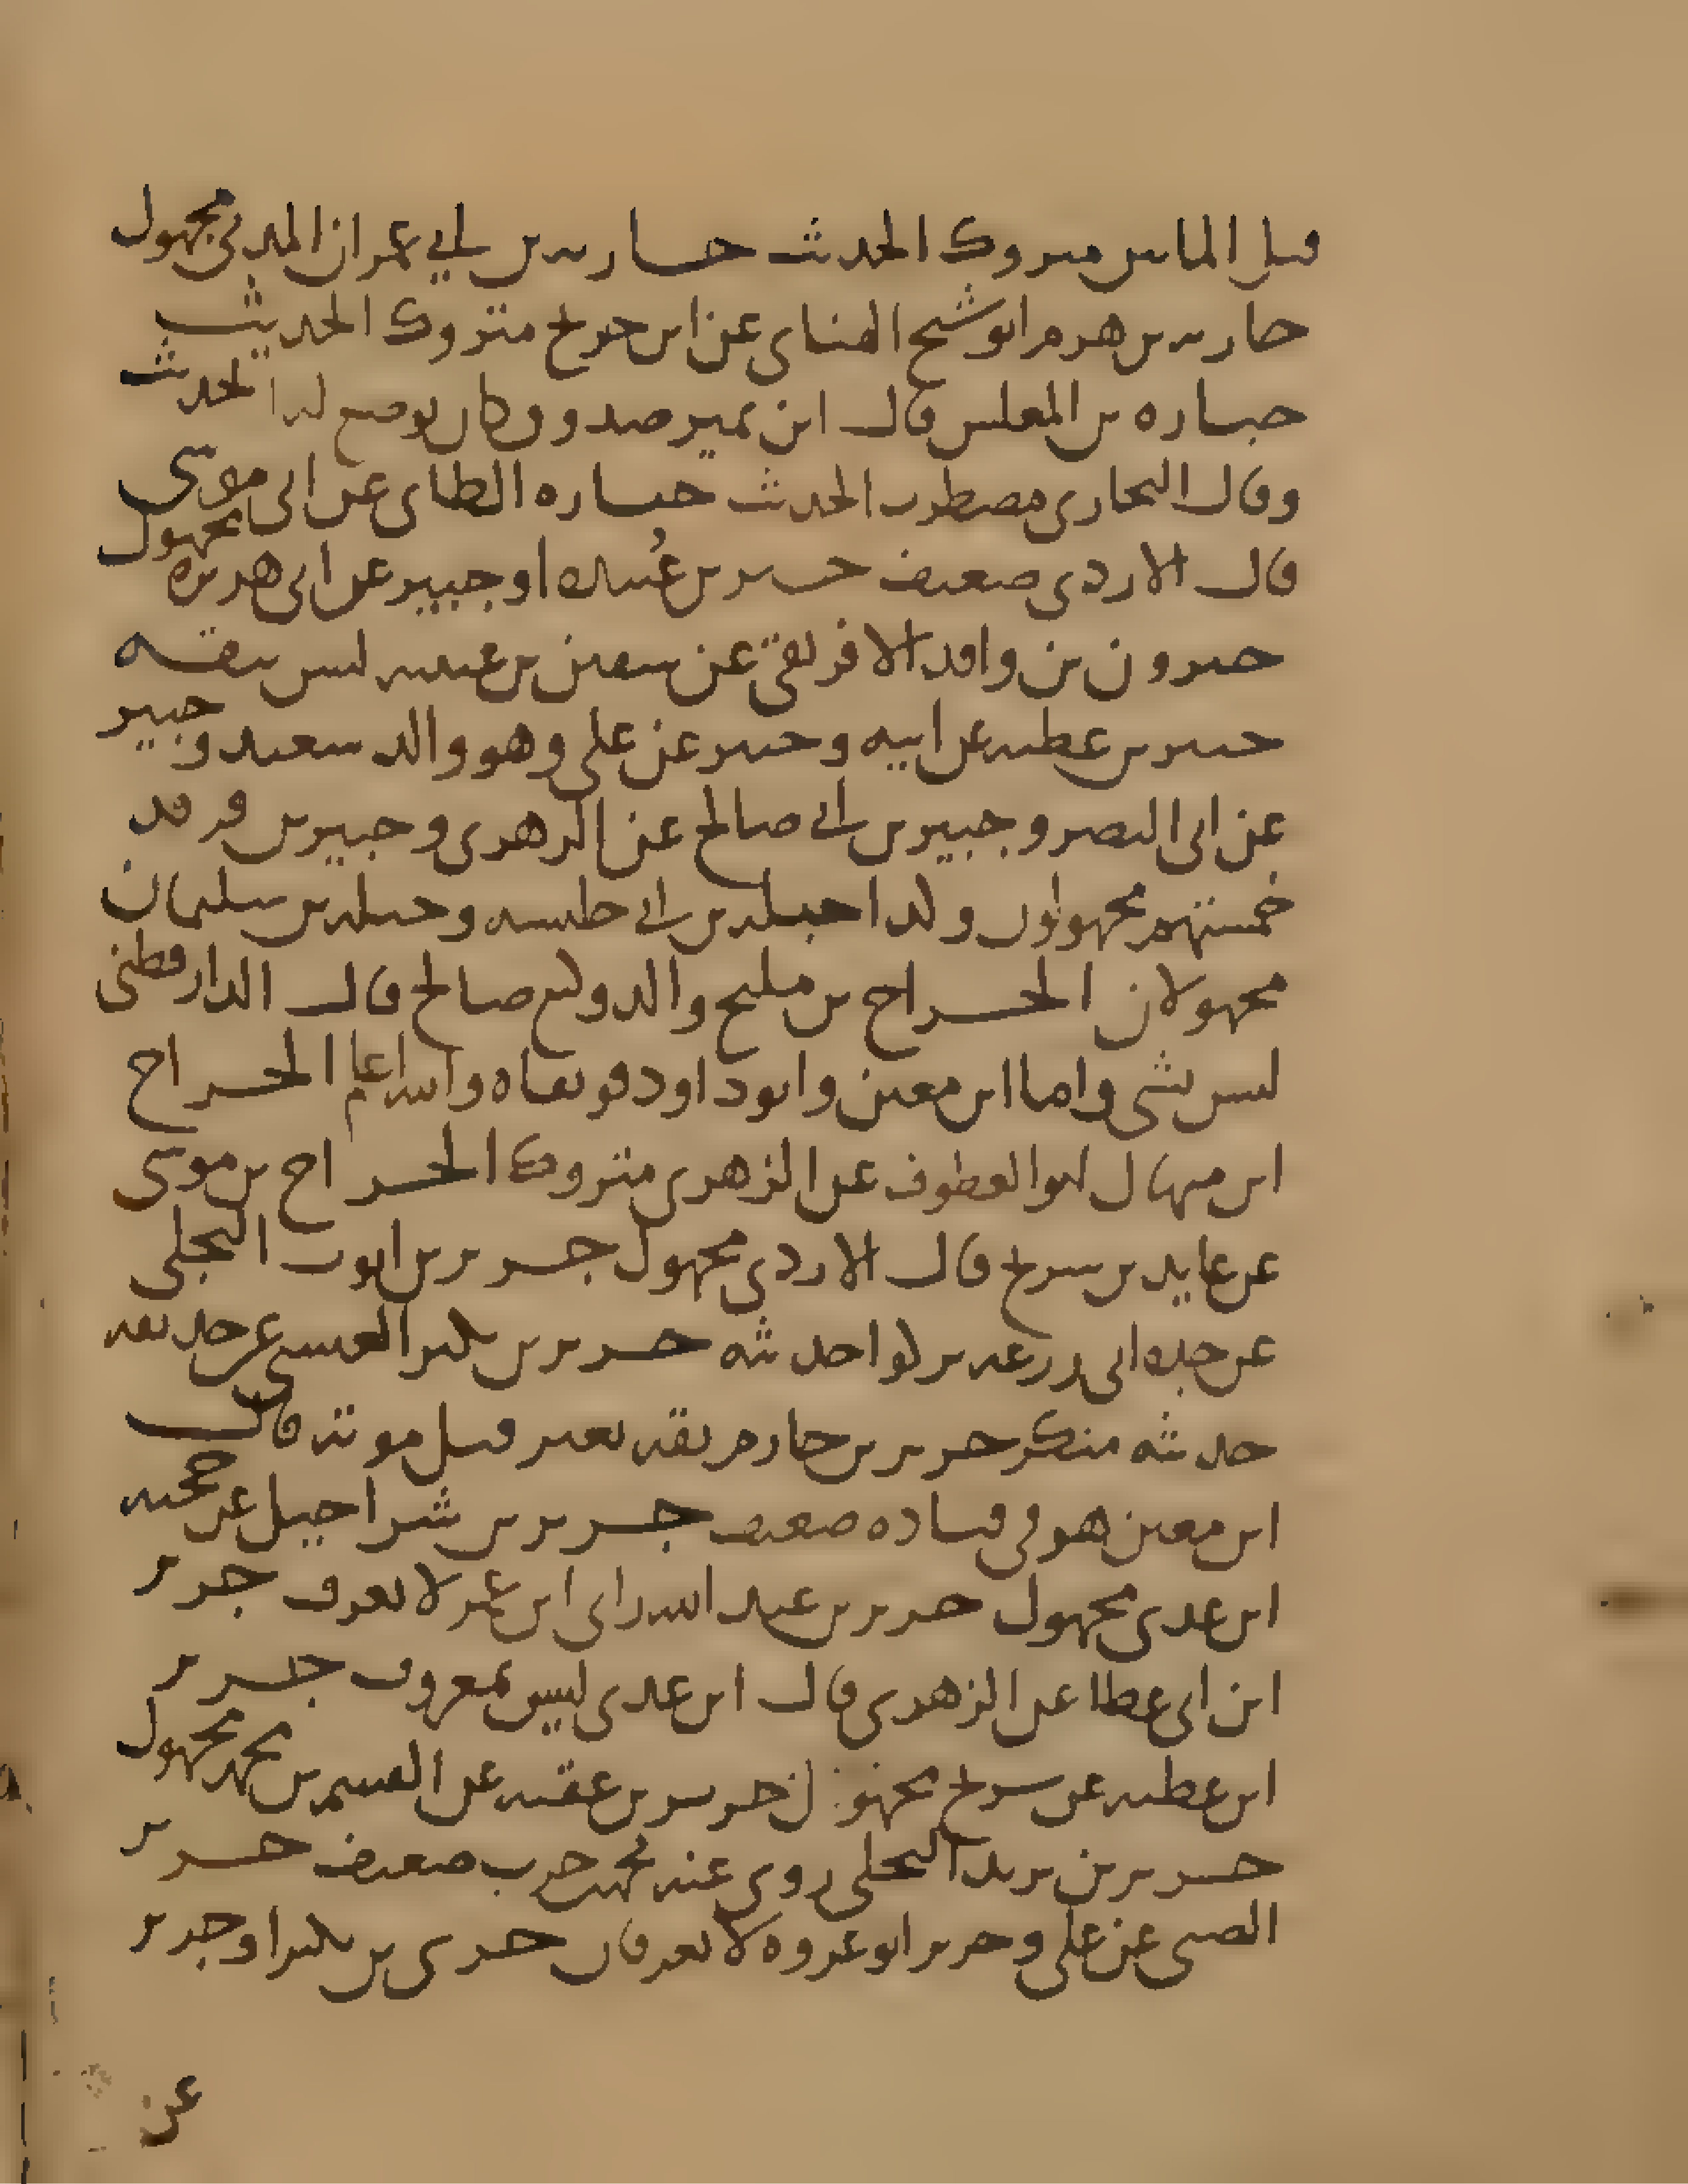 قبل المايتين متروك الحديث جارية بن ابي عمران المدني مجهول
جارية بن هرم ابو شيخ الهنائي عن ابن جريج متروك الحديث
جبارة بن المغلس قال ابن نمير صدوق كان يوضع له الحديث
وقال البخاري مضطرب الحديث جبارة الطائي عن ابي موسى
قال الازدي ضعيف جبر بن عبيدة او جبير عن ابي هريرة مجهول
جبرون بن واقد الافريقي عن سفين بن عيينة ليس بثقة
جبير بن عطية عن ابيه وجبير عن علي وهو والد سعيد وجبير
عن ابي النضر وجبير بن ابي صالح عن الزهري وجبير بن فرقد
خمستهم مجهولون ولذا جبلة بن ابي خليسة وجبلة بن سليمان
مجهولان الجراح بن مليح والد وكيع صالح قال الدارقطني
ليس بشي واما ابن معين وابو داود فوثقاه والله اعلم الجراح
ابن منهال ابو العطوف عن الزهري متروك الجراح بن موسى
عن عايد بن سريج قال الازدي مجهول جرير بن ايوب البجلي
عن جده ابي زرعة تركوا حديثه جرير بن بكير العبسي عن حذيفة
حديثه منكر جرير بن حازم ثقة تغير قبل موته قال
ابن معين هو في قتادة ضعيف جرير بن شراحيل عن حجية
ابن عدي مجهول جرير بن عبد الله راى ابن عمر لا يعرف جرير
ابن ابي عطا عن الزهري قال ابن عدي ليس بمعروف جرير
ابن عطية عن سريج مجهول جرير بن عقبة عن القسم بن محمد مجهول
جرير بن يزيد البجلي روى عنه محمد حرب ضعيف جرير
الضبي عن علي وجرير ابو عروة لا يعرفان جري بن بكير او جرير
عن